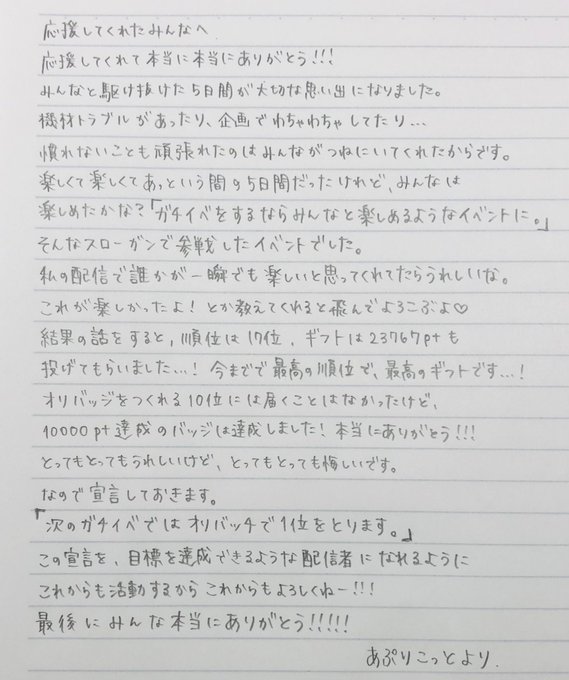 応援してくれたみんなへ
応援してくれて本当に本当にありがとう!!!
みんなと駆け抜けた5日間が大切な思い出になりました。
機材トラブルがあったり、企画でわちゃわちゃしてたり...
慣れないことも頑張れたのはみんながつねにいてくれたからです。
楽しくて楽しくてあっという間の5日間だったけれど、みんなは
楽しめたかな?「ガチイベをするならみんなと楽しめるようなイベントに。」
そんなスローガンで参戦したイベントでした。
私の配信で誰かが一瞬でも楽しいと思ってくれてたらうれしいな。
これが楽しかったよ!とか教えてくれると飛んでよろこぶよ♡
結果の話をすると、順位は17位、ギフトは23767ptも
投げてもらいました...!今までで最高の順位で、最高のギフトです...!
オリバッジをつくれる10位には届くことはなかったけど、
10000pt達成のバッジは達成しました!本当にありがとう!!!
とってもとってもうれしいけど、とってもとっても悔しいです。
なので宣言しておきます。
「次のガチイベではオリバッチで1位をとります。」
この宣言を、目標を達成できるような配信者になれるように
これからも活動するからこれからもよろしくねー!!!
最後にみんな本当にありがとう!!!!!
あぷりこっとより.